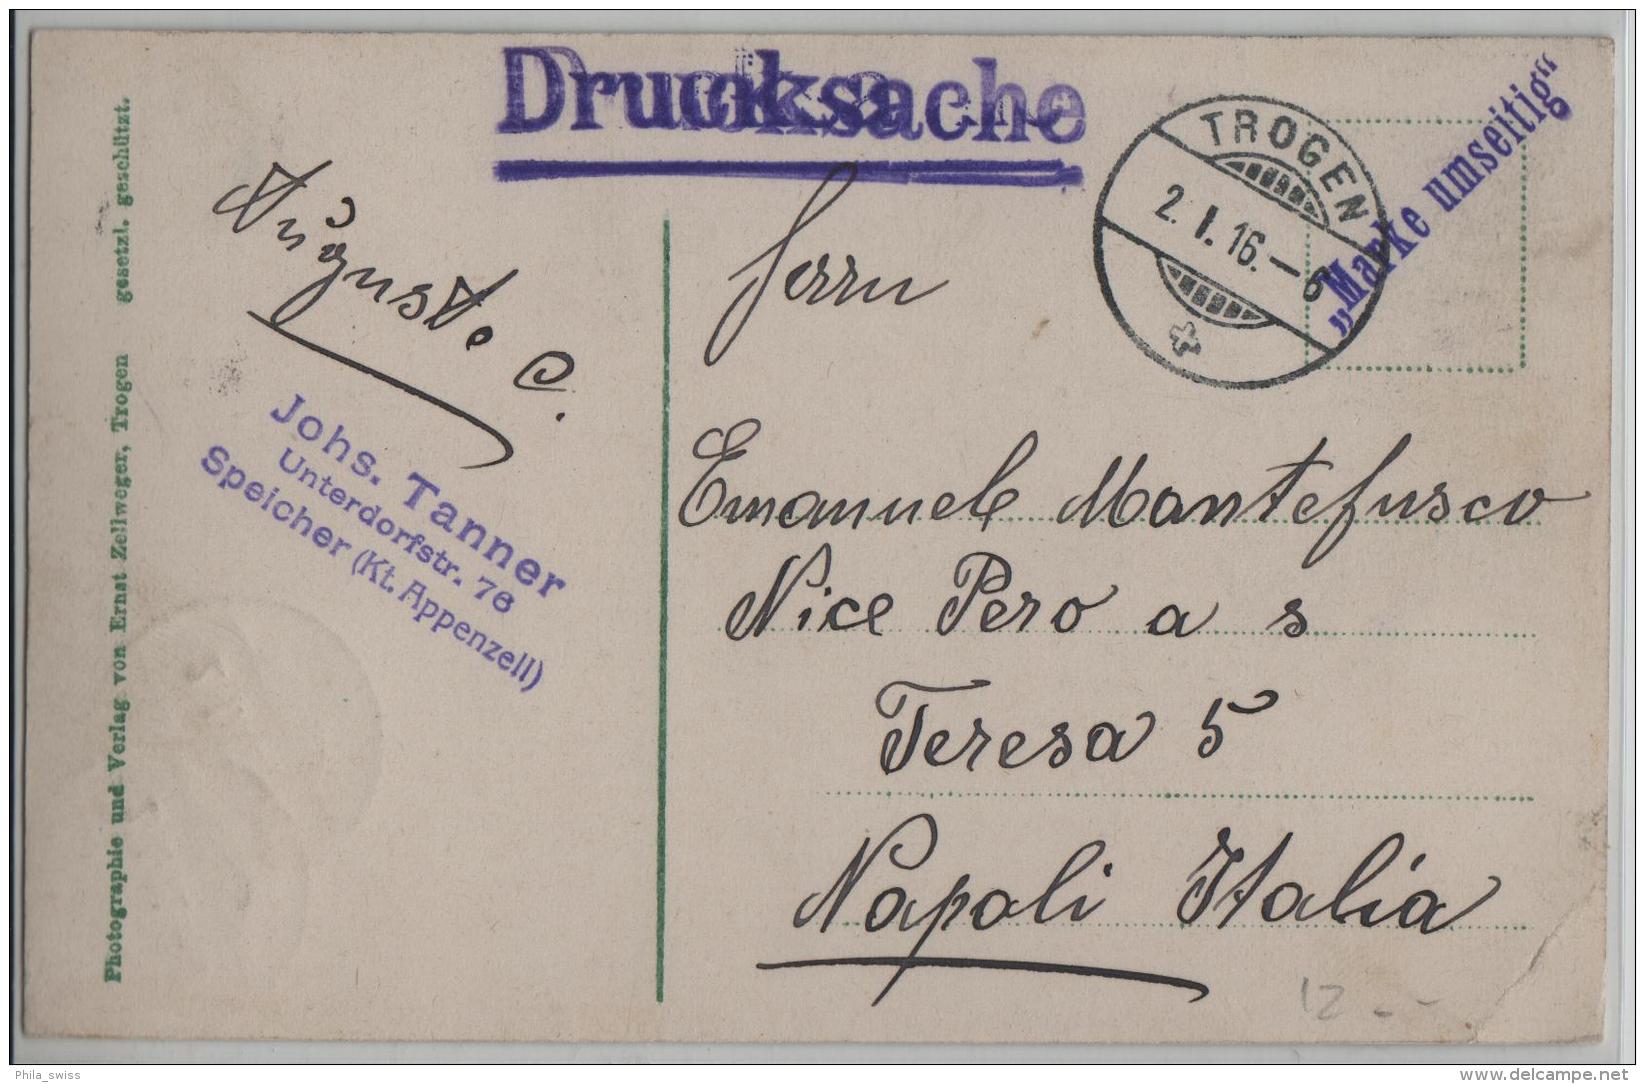 Drucksache
TROGEN
2. I. 16. – 6
„Marke umseitig“
Auguste C.
Johs. Tanner
Unterdorfstr. 76
Speicher (Kt. Appenzell)
Photographie und Verlag von Ernst Zellweger, Trogen gesetzl. geschützt.
Herrn
Emanuele Montefusco
Nice Pero a s
Teresa 5
Napoli Italia
12 - -
Phila_swiss
delcampe.net